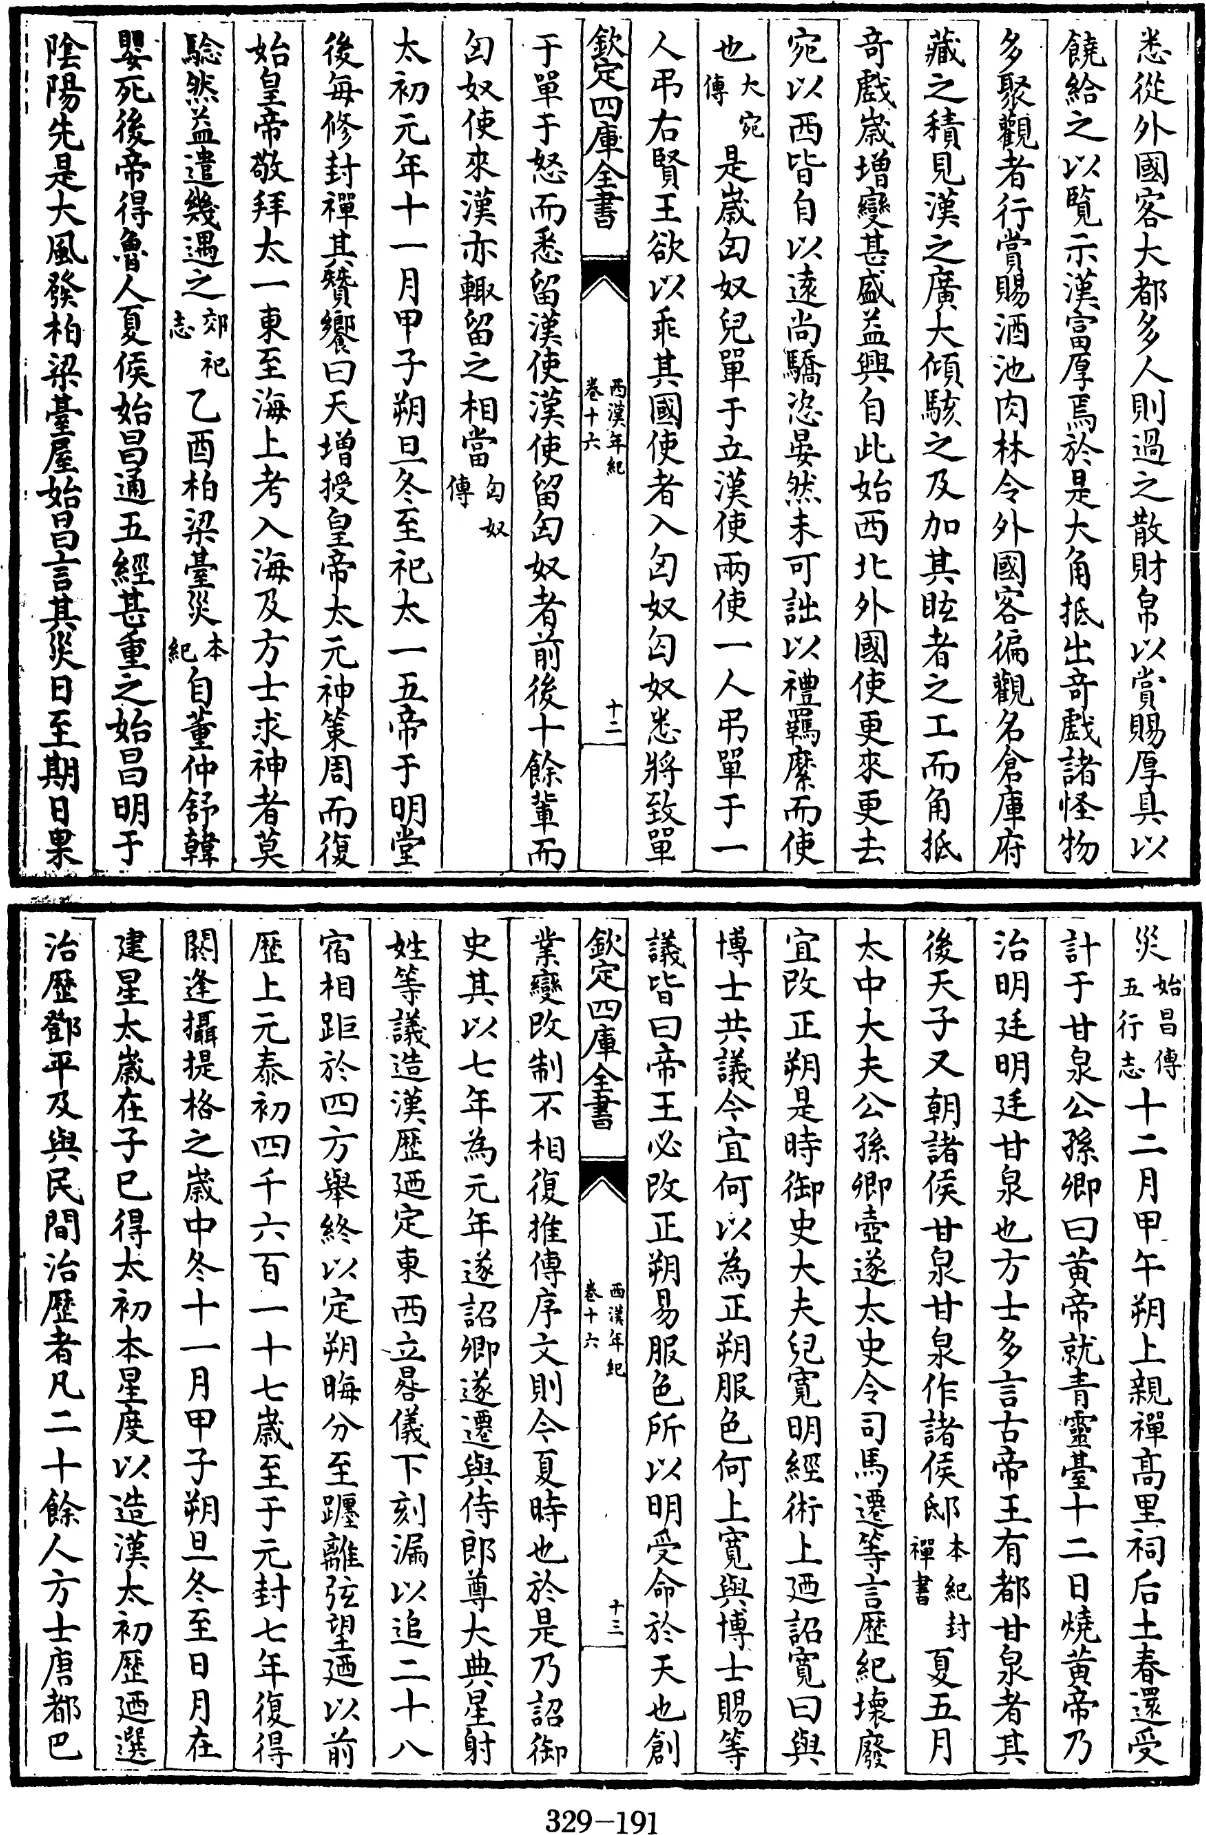 悉從外國客大都多人則過之散財帛以賞賜厚具以
饒給之以覽示漢富厚焉於是大角抵出奇戲諸怪物
多聚觀者行賞賜酒池肉林令外國客徧觀名倉庫府
藏之積見漢之廣大傾駭之及加其眩者之工而角抵
奇戲歲增變甚盛益興自此始西北外國使更來更去
宛以西皆自以遠尚驕恣晏然未可詘以禮羈縻而使
也大宛傳是歲匈奴兒單于立漢使兩使一人弔單于一
人弔右賢王欲以乖其國使者入匈奴匈奴悉將致單
欽定四庫全書 西漢年紀卷十六 十二
于單于怒而悉留漢使漢使留匈奴者前後十餘輩而
匈奴使來漢亦輙留之相當匈奴傳
太初元年十一月甲子朔旦冬至祀太一五帝于明堂
後每修封禪其贊饗曰天增授皇帝太元神策周而復
始皇帝敬拜太一東至海上考入海及方士求神者莫
騐然益遣幾遇之郊祀志乙酉柏梁臺災本紀自董仲舒韓
嬰死後帝得魯人夏侯始昌通五經甚重之始昌明于
陰陽先是大風發柏梁臺屋始昌言其災日至期日果
災始昌傳五行志十二月甲午朔上親禪高里祠后土春還受
計于甘泉公孫卿曰黃帝就青靈臺十二日燒黃帝乃
治明廷明廷甘泉也方士多言古帝王有都甘泉者其
後天子又朝諸侯甘泉甘泉作諸侯邸本紀封禪書夏五月
太中大夫公孫卿壺遂太史令司馬遷等言歷紀壞廢
宜改正朔是時御史大夫兒寛明經術上廼詔寛曰與
博士共議今宜何以為正朔服色何上寛與博士賜等
議皆曰帝王必改正朔易服色所以明受命於天也創
欽定四庫全書 西漢年紀卷十六 十三
業變改制不相復推傳序文則今夏時也於是乃詔御
史其以七年為元年遂詔卿遂遷與侍郎尊大典星射
姓等議造漢歷廼定東西立晷儀下刻漏以追二十八
宿相距於四方舉終以定朔晦分至躔離弦望廼以前
歷上元泰初四千六百一十七歲至于元封七年復得
閼逢攝提格之歲中冬十一月甲子朔旦冬至日月在
建星太歲在子已得太初本星度以造漢太初歷廼選
治歷鄧平及與民間治歷者凡二十餘人方士唐都巴
329-191